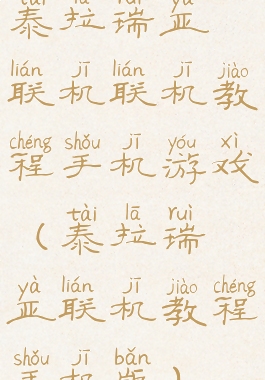 tài lā ruì yà
泰拉瑞亚
lián jī lián jī jiào
联机联机教
chéng shǒu jī yóu xì
程手机游戏
tài lā ruì
（泰拉瑞
yà lián jī jiào chéng
亚联机教程
shǒu jī bǎn
手机版）